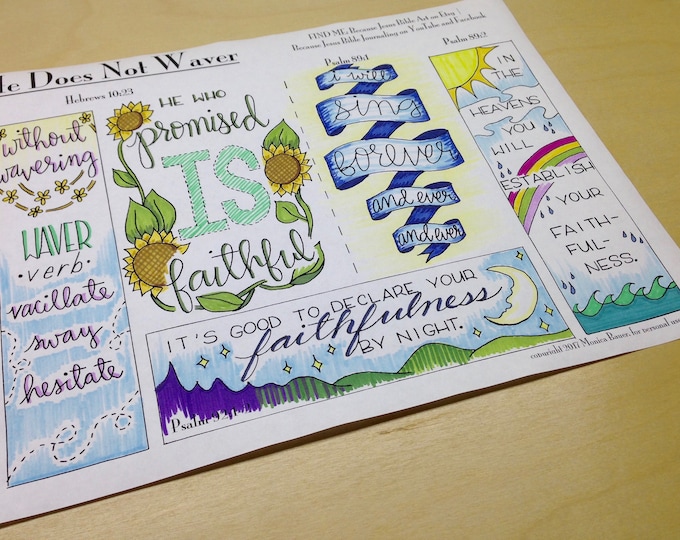 He Does Not Waver
Hebrews 10:23
FIND ME: Because Jesus Bible Art on Etsy |
Because Jesus Bible Journaling on YouTube and Facebook
without
wavering
WAVER
·verb·
vacillate
sway
hesitate
HE WHO
promised
IS
faithful
Psalm 89:1
i will
sing
forever
and ever
and ever
Psalm 89:2
IN
THE
HEAVENS
YOU
WILL
ESTABLISH
YOUR
FAITH-
FUL-
NESS.
IT'S GOOD TO DECLARE YOUR
faithfulness
BY NIGHT.
Psalm
copyright 2017 Monica Bauer, for personal use